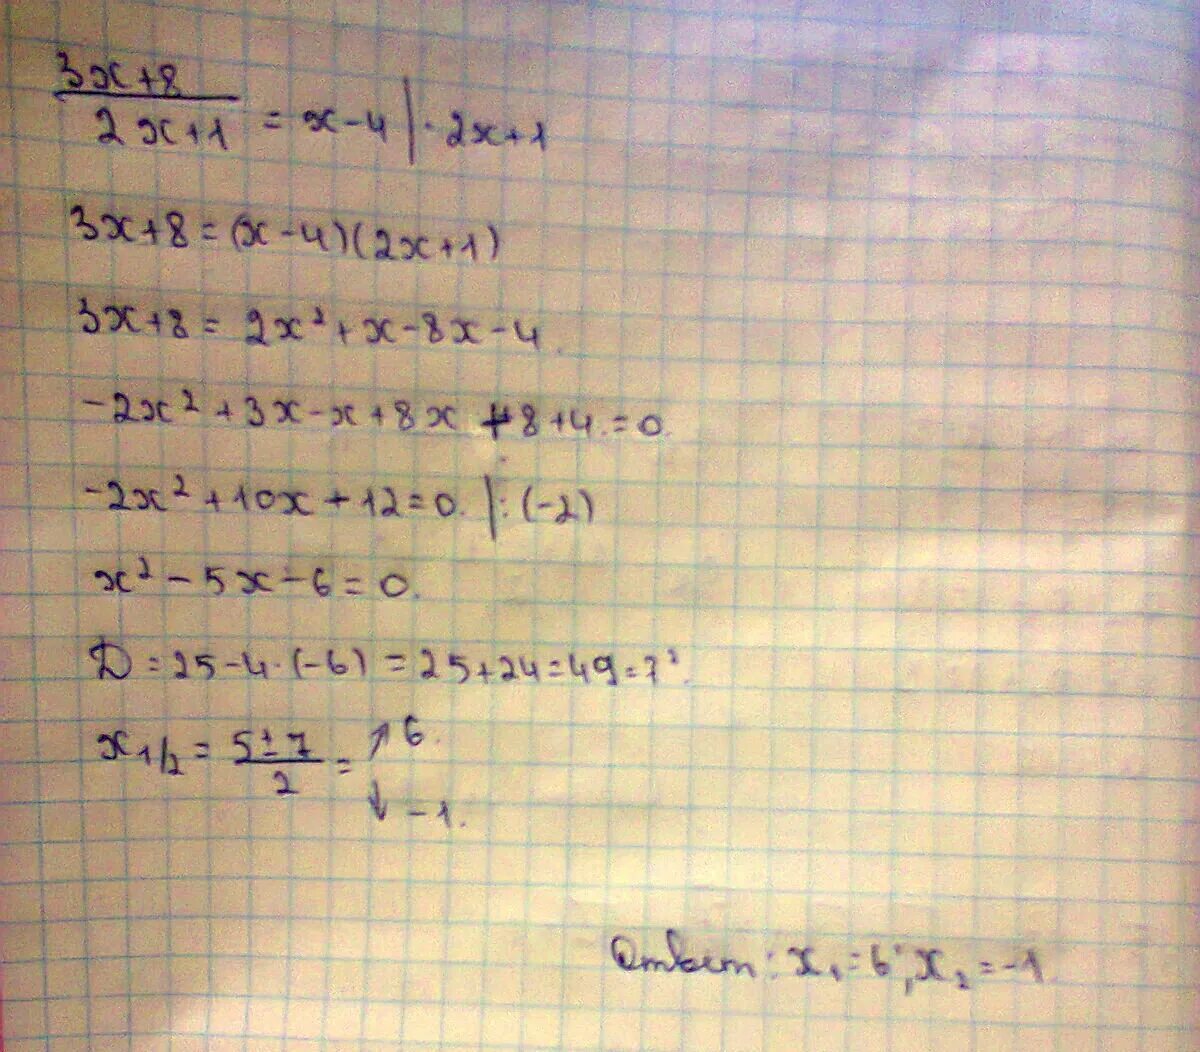 3x+8
2x+1 = x-4 | · 2x+1
3x+8 = (x-4)(2x+1)
3x+8 = 2x² + x - 8x - 4.
-2x² + 3x - x + 8x + 8 + 4. = 0.
-2x² + 10x + 12 = 0. | : (-2)
x² - 5x - 6 = 0.
D = 25 - 4 · (-6) = 25 + 24 = 49 = 7².
x 1/2 = 5 ± 7 / 2 = ↗ 6.
↓ -1.
Ответ: x₁ = 6; x₂ = -1.